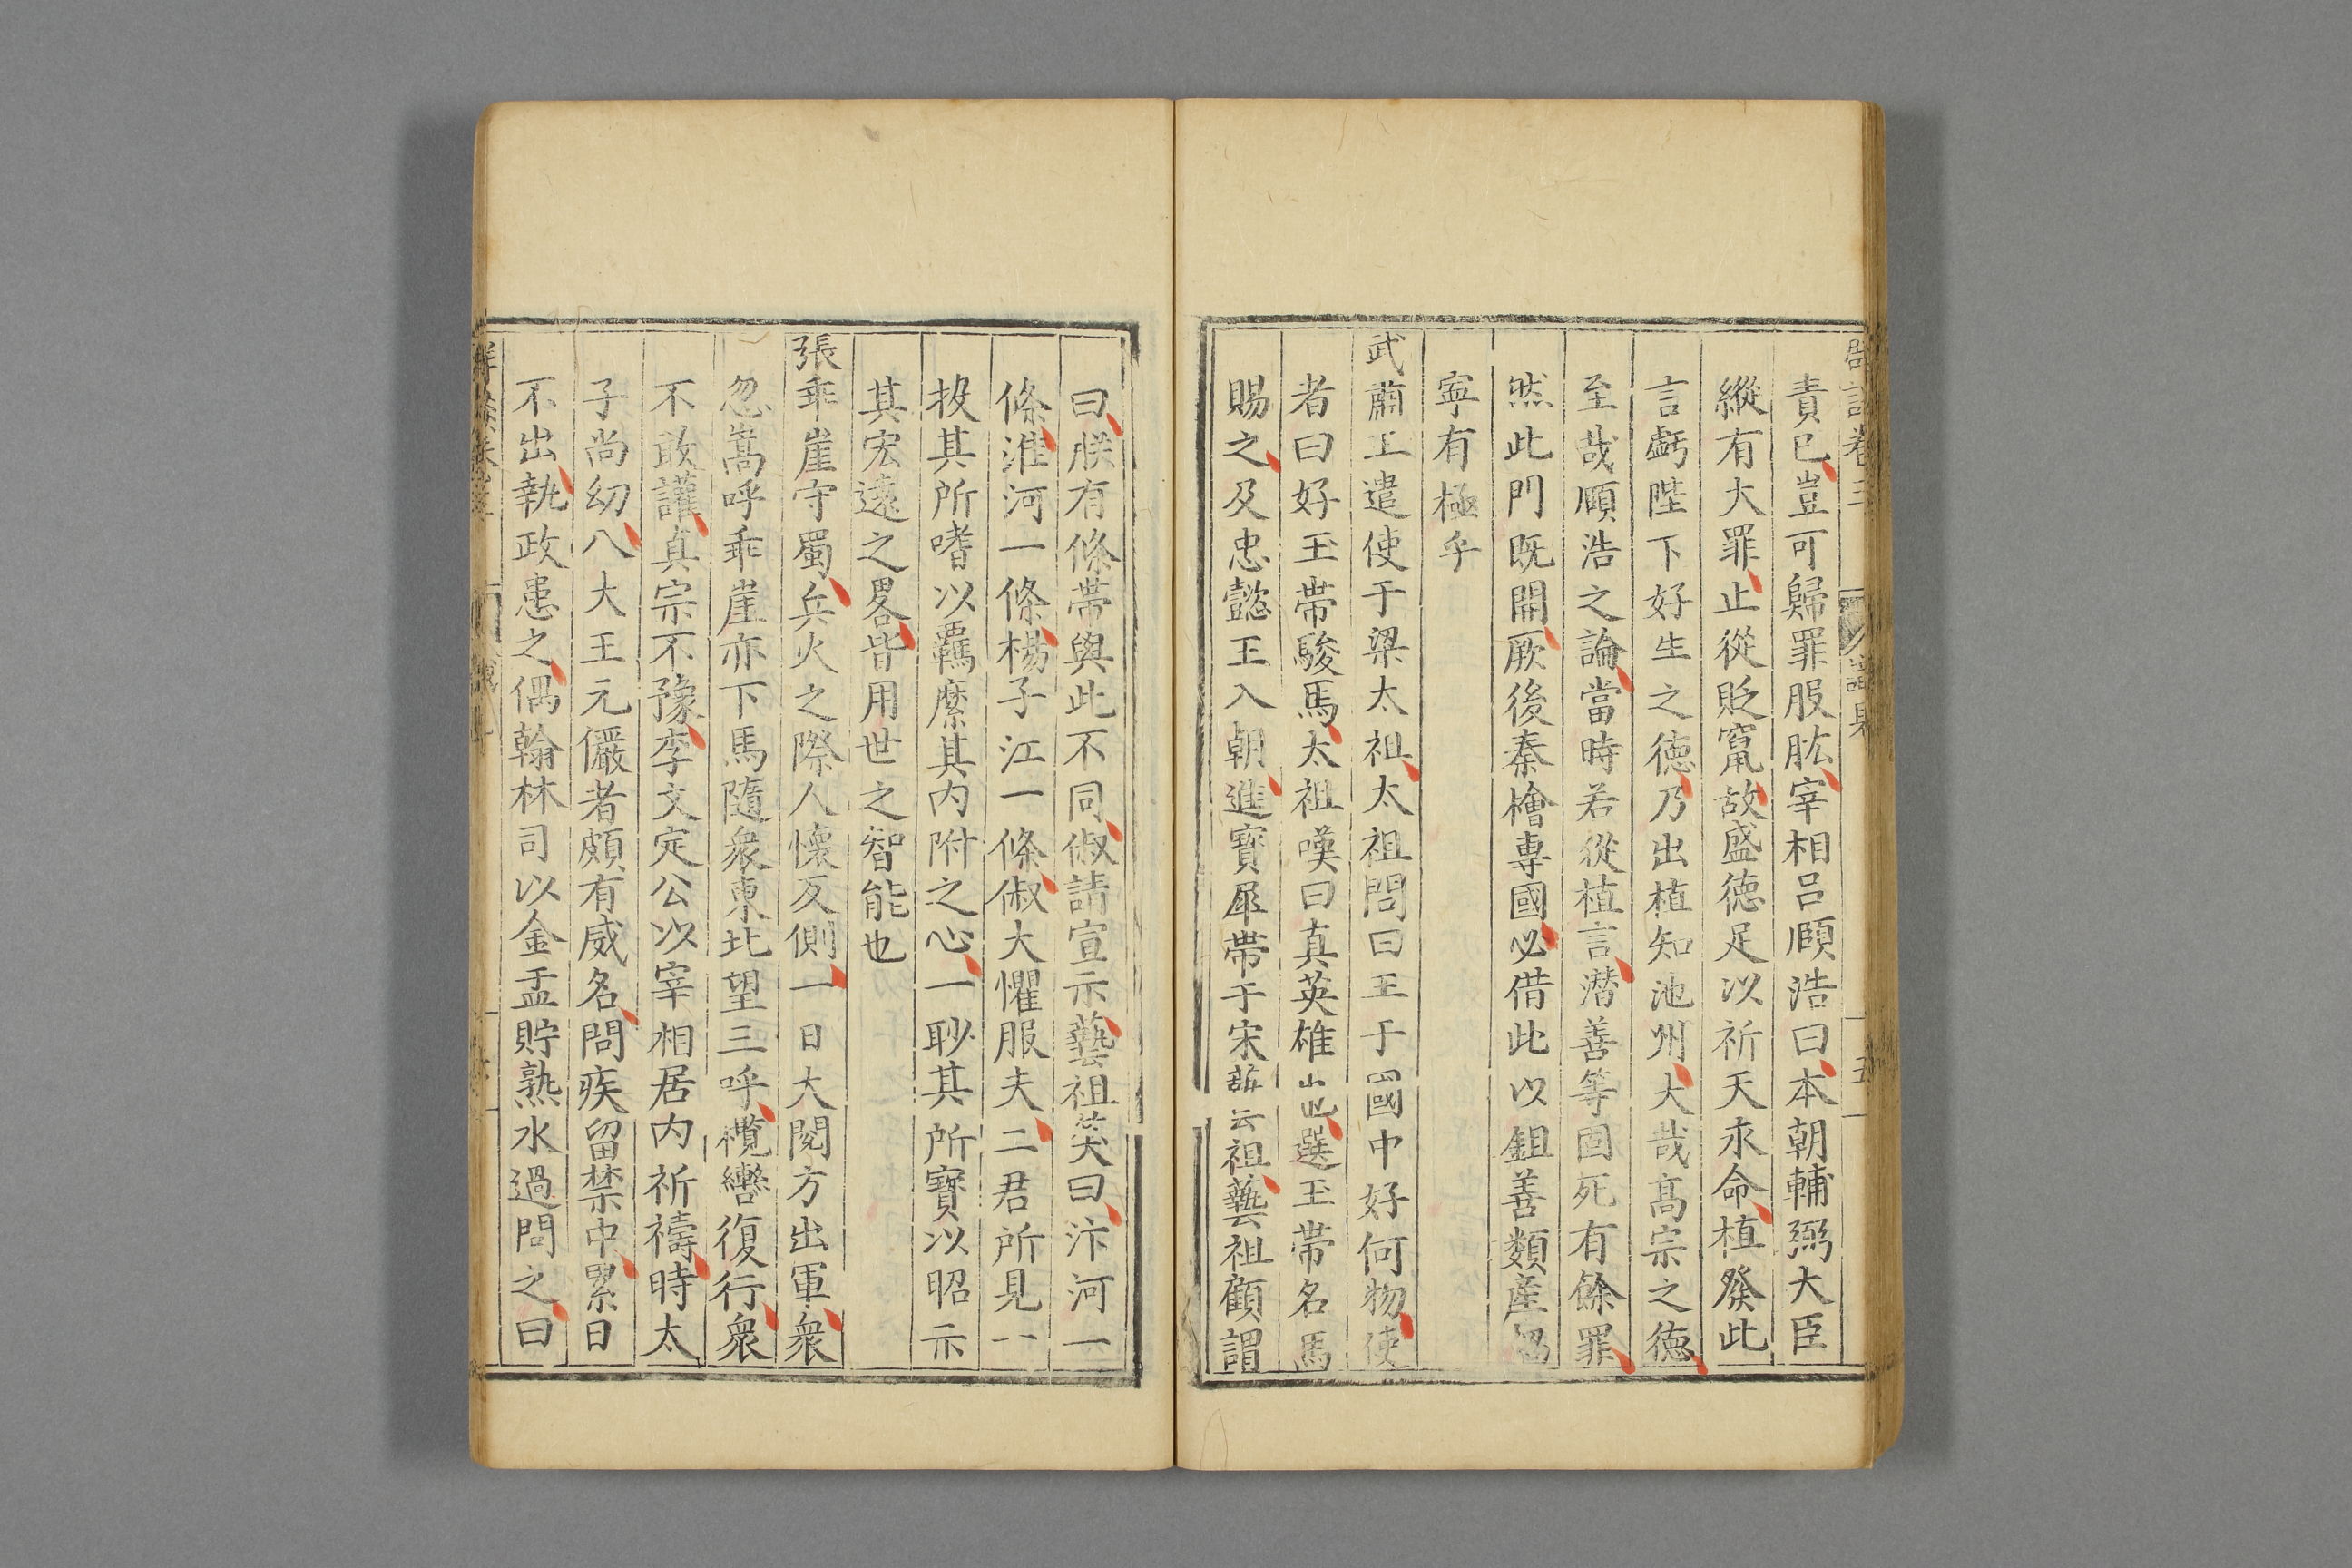 責已豈可歸罪股肱宰相呂頤浩曰本朝輔弼大臣
縱有大罪止從貶竄故盛德足以祈天永命植發此
言虧陛下好生之德乃出植知池州大哉髙宗之德
至哉頤浩之論當時若從植言潜善等固死有餘罪
然此門既開厥後秦檜專國必借此以鉏善類產禍
寕有極乎
武肅王遣使于梁太祖太祖問曰王于國中好何物使
者曰好玉帶駿馬太祖嘆曰真英雄也選玉帶名馬
賜之及忠懿王入朝進寳犀帶于宋藝祖顧謂
曰朕有條帶與此不同俶請宣示藝祖笑曰汴河一
條淮河一條楊子江一條俶大懼服夫二君所見一
投其所嗜以羈縻其内附之心一眇其所寳以昭示
其宏逺之畧皆用世之智能也
張乖崖守蜀兵火之際人懷反側一日大閱方出軍衆
忽嵩呼乖崖亦下馬隨衆東北望三呼欖轡復行衆
不敢讙真宗不豫李文定公以宰相居内祈禱時太
子尚幼八大王元儼者頗有威名問疾留禁中累日
不出執政患之偶翰林司以金盂貯熟水過問之曰